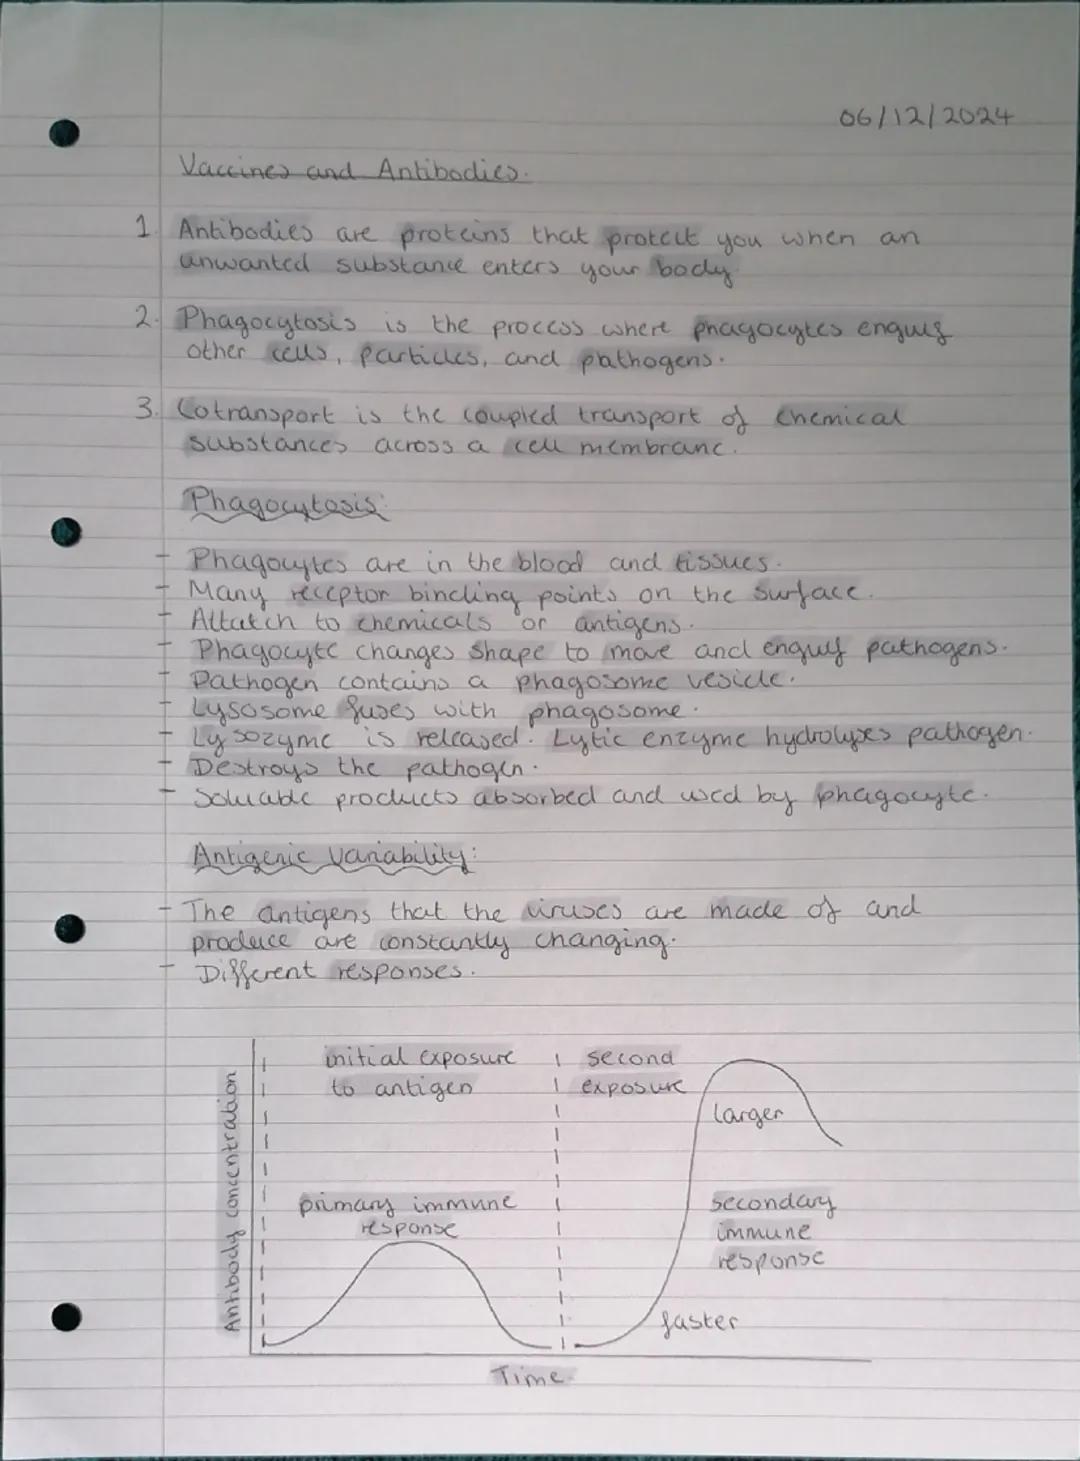 06/12/2024
Vaccines and Antibodies.
1. Antibodies are proteins that protect you when an
unwanted substance enters your body.
2. Phagocytosis is the process where phagocytes engulf
other cells, particles, and pathogens.
3. Cotransport is the coupled transport of chemical
substances across a cell membrane.
Phagocytosis:
- Phagocytes are in the blood and tissues.
- Many receptor binding points on the surface.
- Attatch to chemicals or antigens.
- Phagocyte changes shape to move and engulf pathogens.
- Pathogen contains a phagosome vesicle.
- Lysosome fuses with phagosome.
- Lysozyme is released. Lytic enzyme hydrolyses pathogen.
- Destroys the pathogen.
- Soluable products absorbed and used by phagocyte.
Antigenic Variability:
- The antigens that the viruses are made of and
produce are constantly changing.
- Different responses.
initial exposure
to antigen
second
exposure
larger
primary immune
response
secondary
immune
response
faster
Antibody concentration
Time